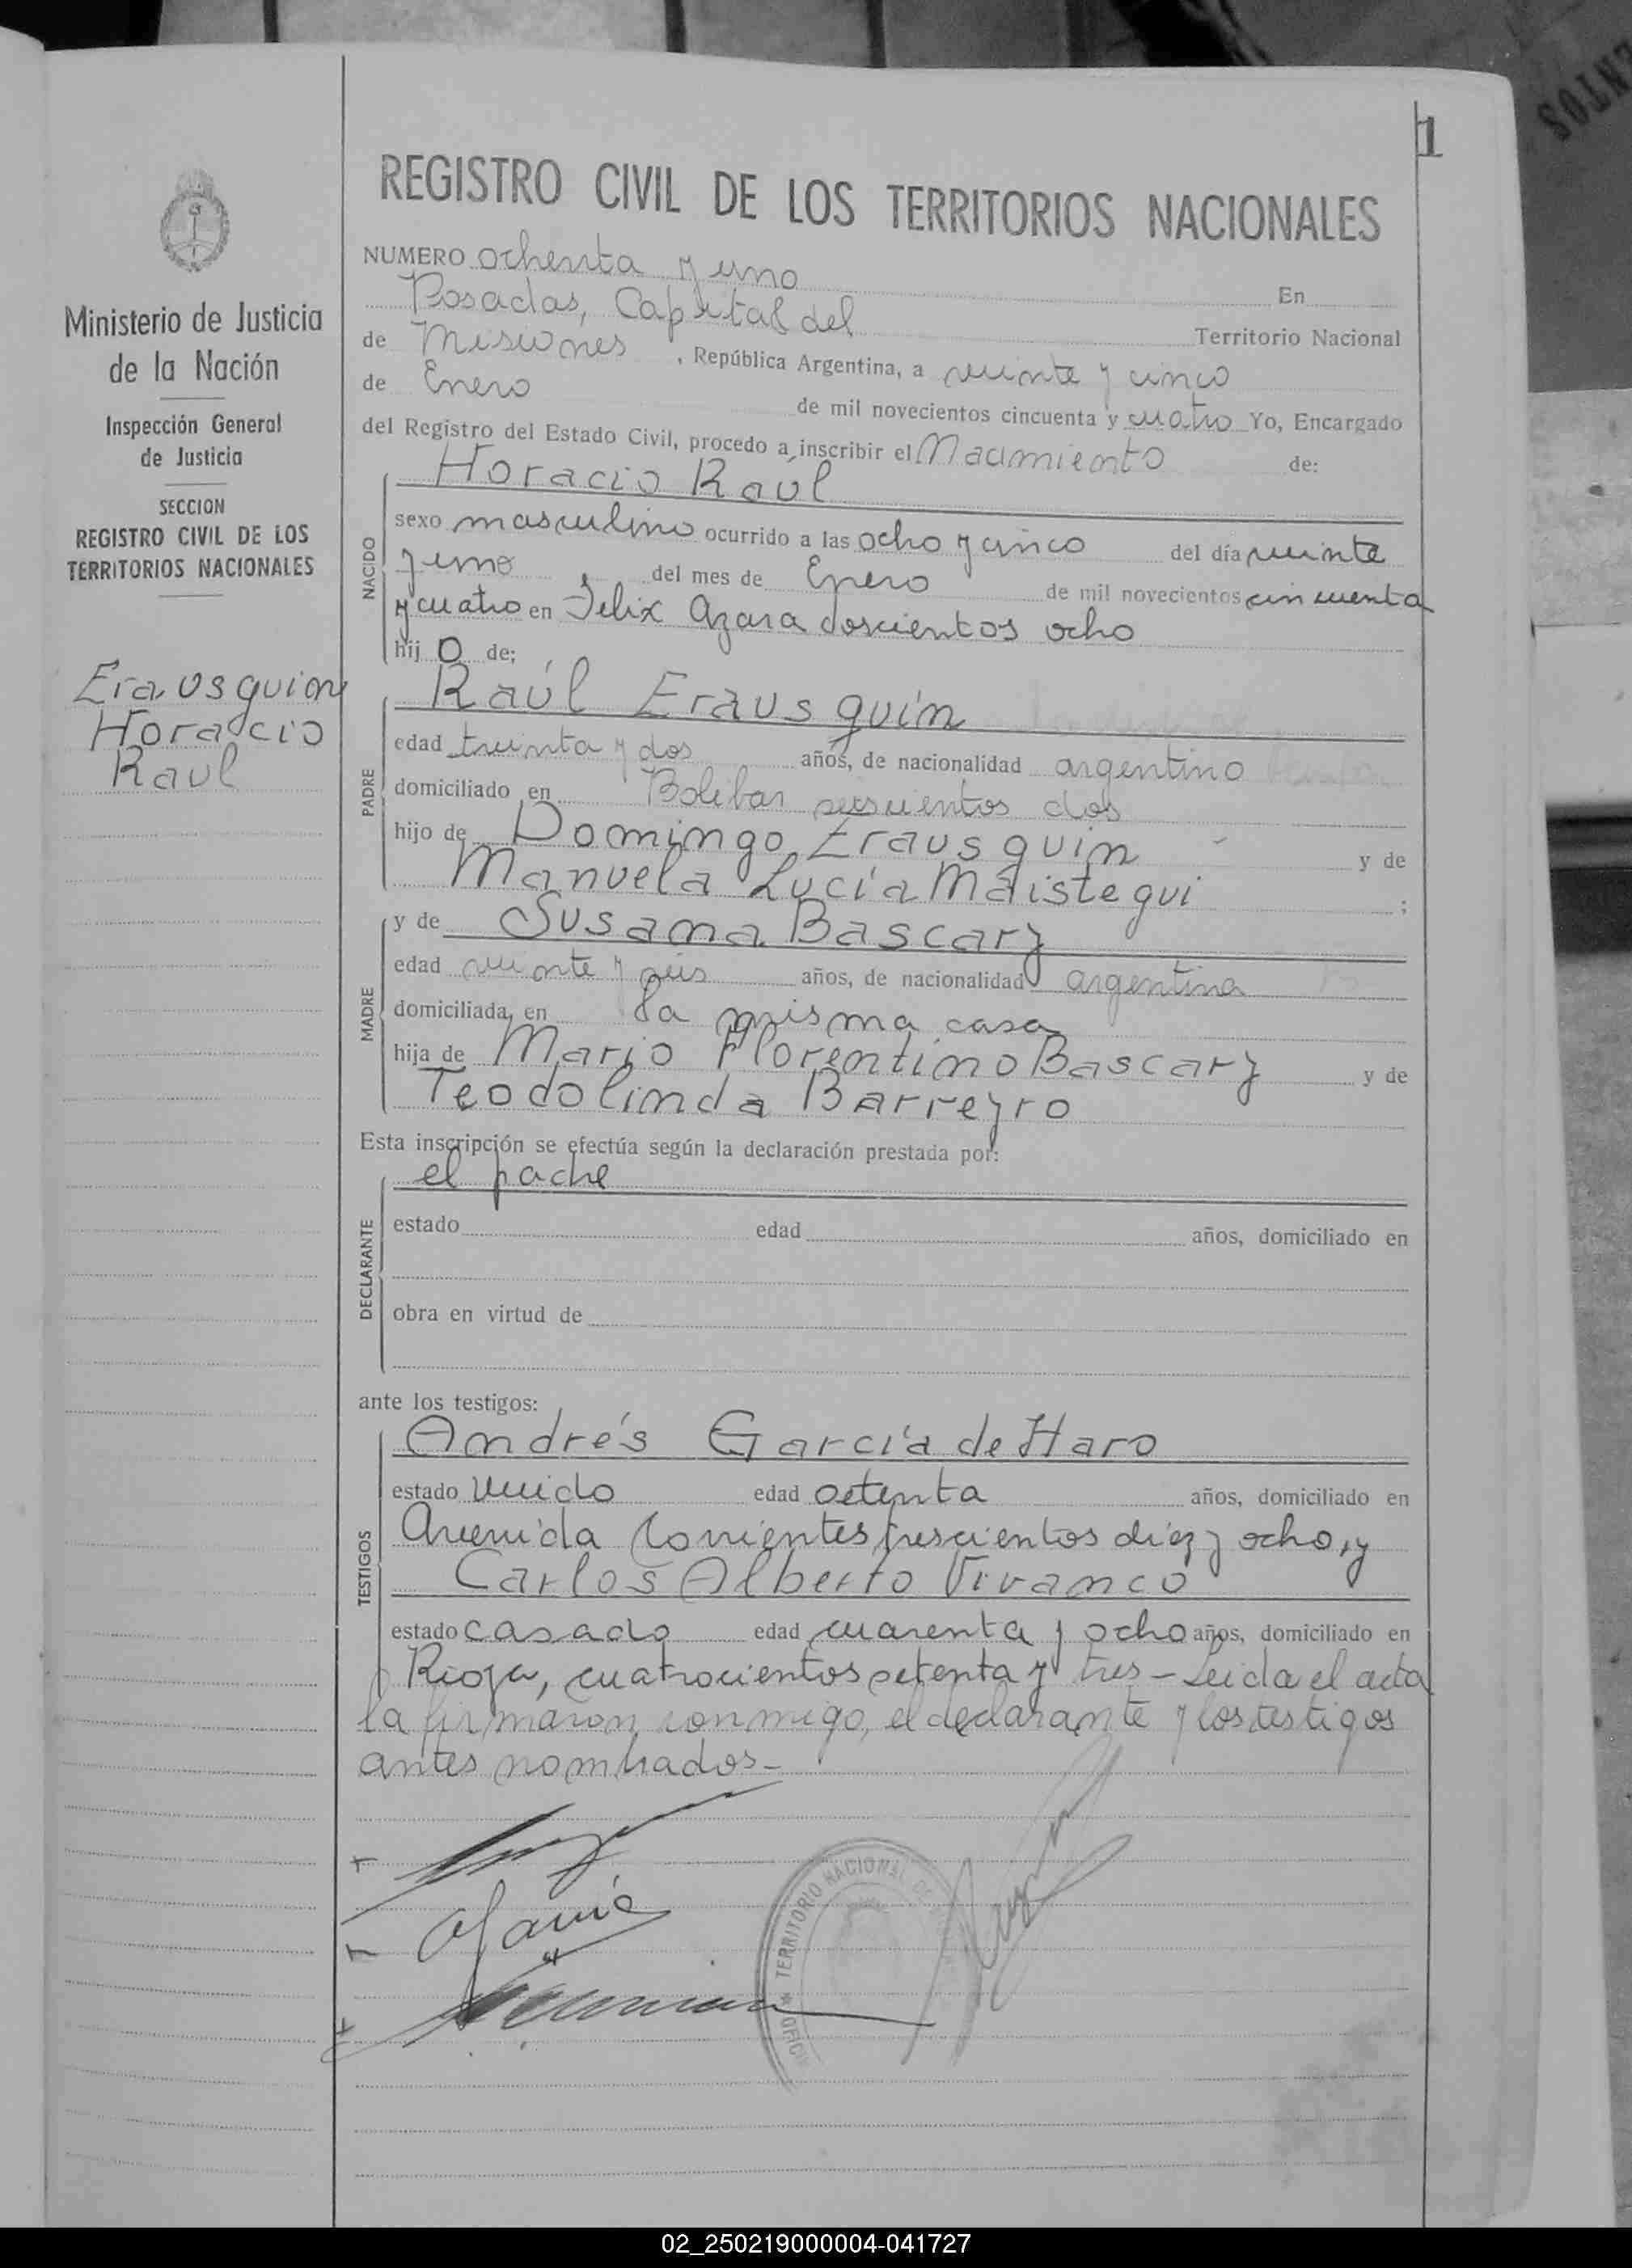 1
REGISTRO CIVIL DE LOS TERRITORIOS NACIONALES
Ministerio de Justicia
de la Nación
Inspección General
de Justicia
SECCION
REGISTRO CIVIL DE LOS
TERRITORIOS NACIONALES
Erausquin
Horacio
Raul
NUMERO ochenta y uno
En
Posadas, Capital del Territorio Nacional
de Misiones, República Argentina, a veinte y cinco
de Enero de mil novecientos cincuenta y cuatro Yo, Encargado
del Registro del Estado Civil, procedo a inscribir el Nacimiento de:
NACIDO
Horacio Raúl
sexo masculino ocurrido a las ocho y cinco del día veinte
y uno del mes de Enero de mil novecientos cincuenta
y cuatro en Felix Azara doscientos ocho
hijo de;
PADRE
Raúl Erausquin
edad treinta y dos años, de nacionalidad argentino
domiciliado en Bolibar seiscientos dos
hijo de Domingo Erausquin y de
Manuela Lucía Maistegui ;
MADRE
y de Susana Bascary
edad veinte y seis años, de nacionalidad argentina
domiciliada en la misma casa
hija de Mario Florentino Bascary y de
Teodolinda Barreyro
Esta inscripción se efectúa según la declaración prestada por:
DECLARANTE
el padre
estado edad años, domiciliado en
obra en virtud de
ante los testigos:
TESTIGOS
Andrés García de Haro
estado viudo edad setenta años, domiciliado en
Avenida Corrientes trescientos diez y ocho, y
Carlos Alberto Vivanco
estado casado edad cuarenta y ocho años, domiciliado en
Rioja, cuatrocientos setenta y tres - Leida el acta
la firmaron conmigo, el declarante y los testigos
antes nombrados.-
TERRITORIO NACIONAL DE
02_250219000004-041727